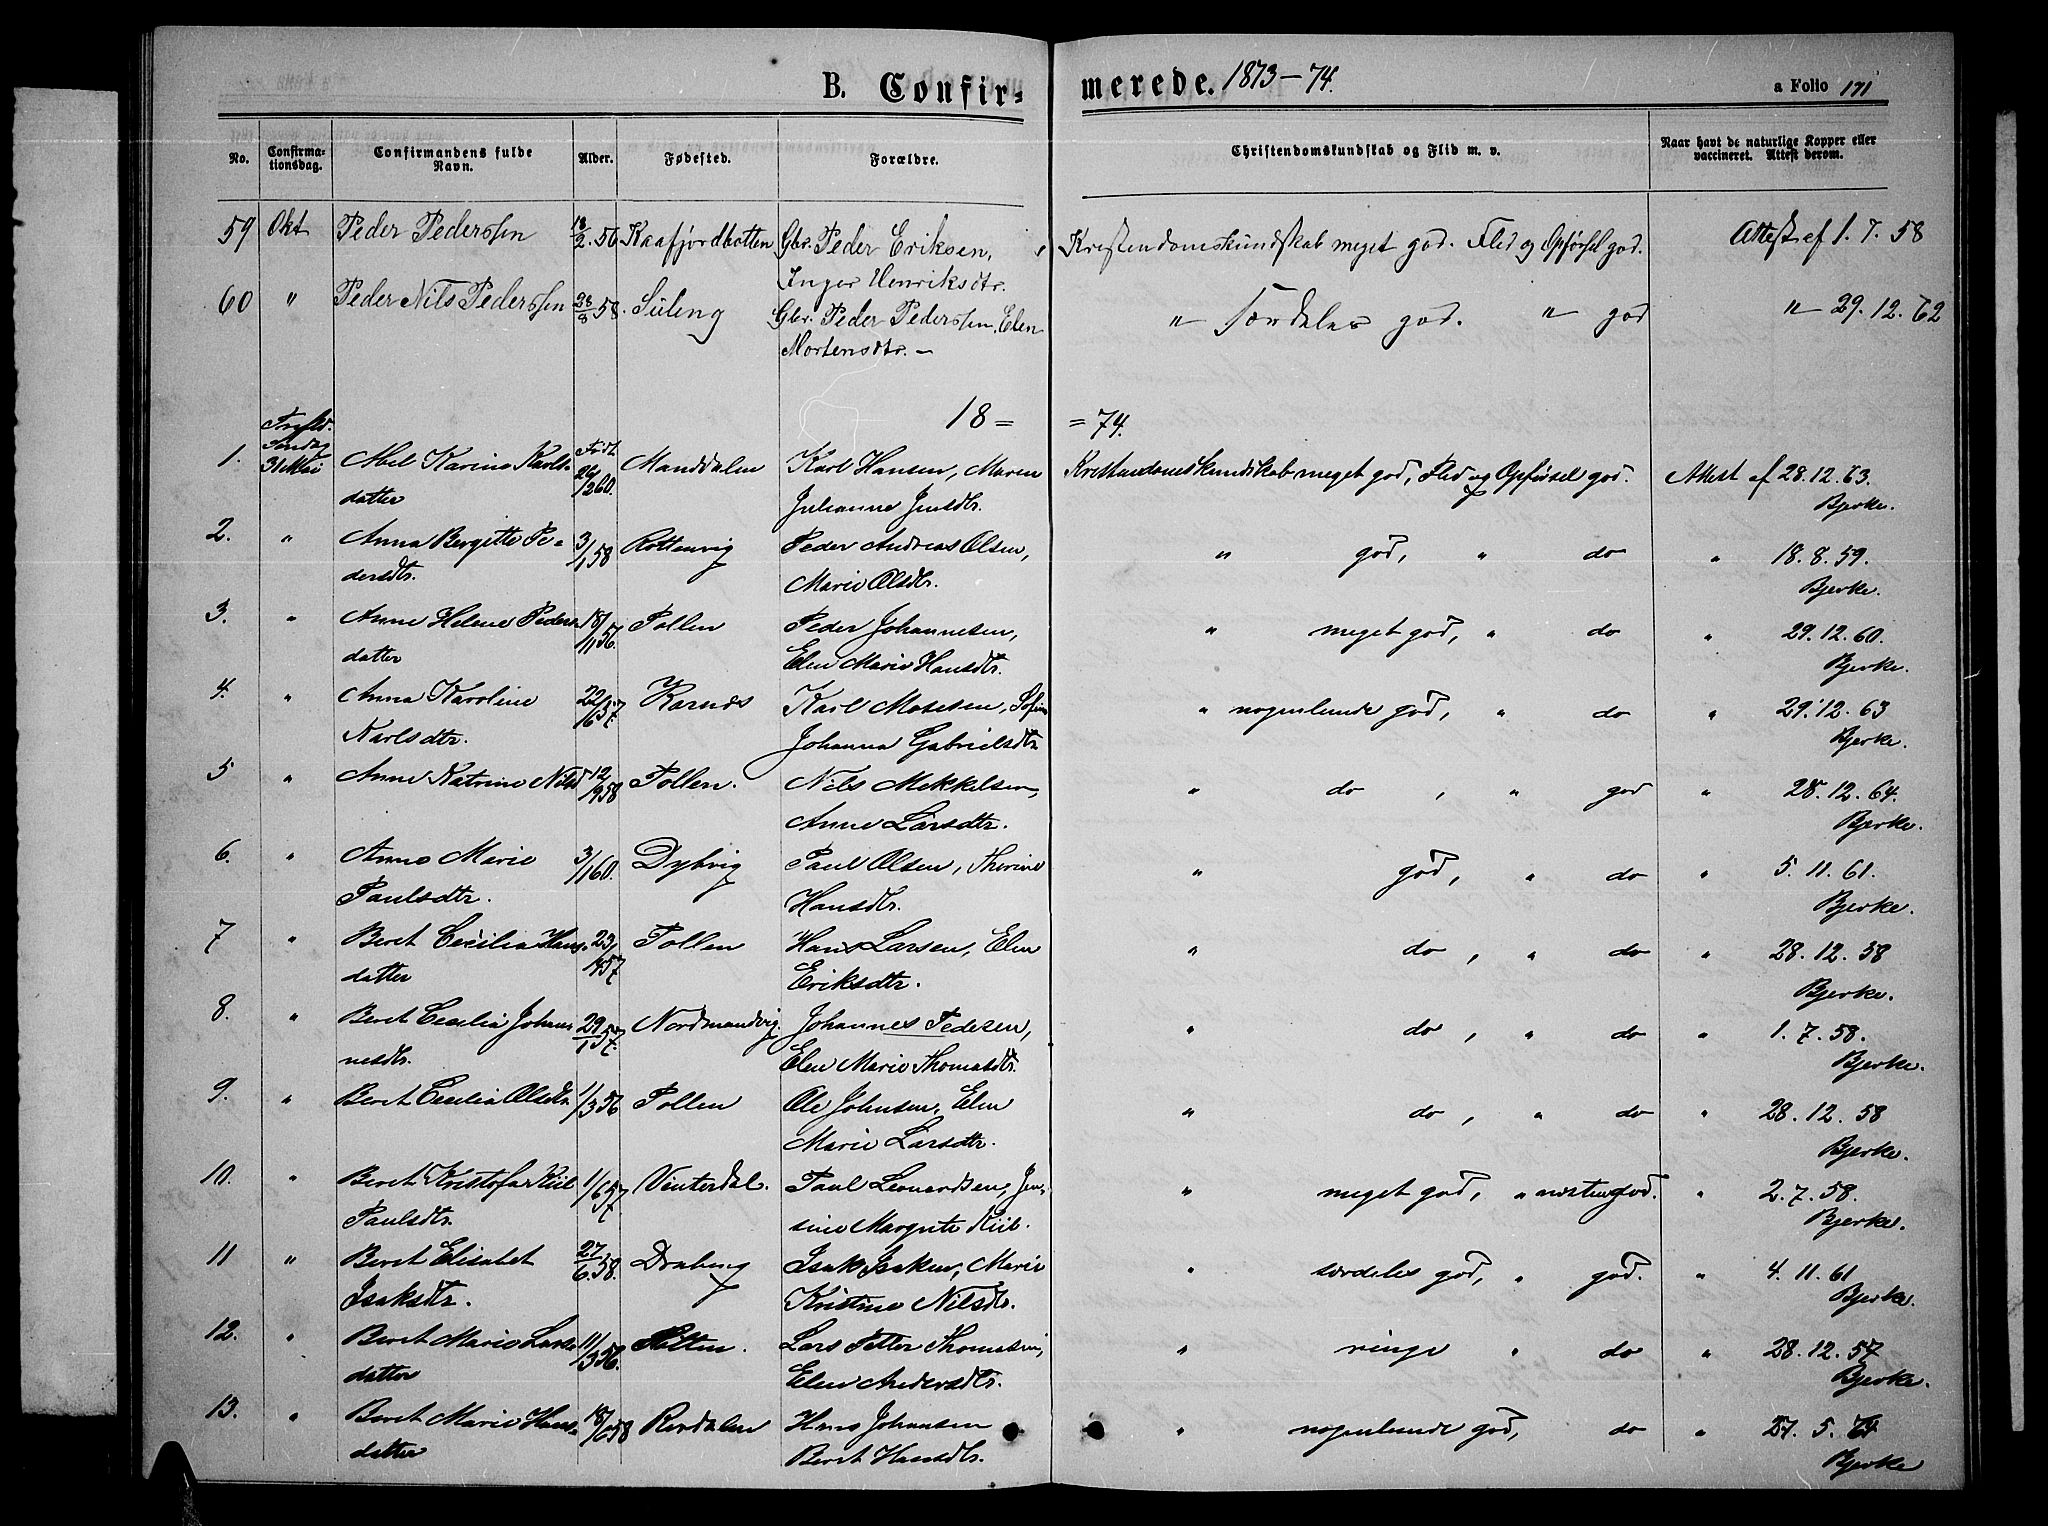 B. Confir= merede. 1873-74. a Folio 171
No. Confirmationsdag. Confirmandens fulde Navn. Alder. Fødested. Forældre. Christendomskundskab og Flid m. v. Naar havt de naturlige Kopper eller vaccineret. Attest derom.
59 Okt Peder Pederssen 18/2.56 Kaafjordbotten Gbr. Peder Eriksen, Kristendomskundskab meget god. Flid og Opførsel god. Attest af 1.7.58
Inger Henriksdtr.
60 " Peder Nils Pederssen 28/8 58. Sileng Gbr. Peder Pederssen, Elen " Særdeles god. " god " 29.12.62
Mortensdtr. -
18= =74.
Søndag Født
1. 31 Mai Abel Karine Karls- 26/12 60. Manddalen Karl Hansen, Maren Kristendomskundskab meget god, Flid og Opførsel god. Attest af 28.12.63.
datter Johanna Jensdtr. Bjerke.
2. " Anna Bergitte Pe- 3/1 58 Rottenvig Peder Andreas Olsen, " god, " do " 18.8.59.
dersdtr. Marie Olsdtr. Bjerke.
3. " Anne Helene Peders- 18/11 56. Pollen Peder Johannesen, " meget god, " do " 29.12.60.
datter Elen Marie Hansdtr. Bjerke.
4. " Anna Karoline 22/6 57 Karnes Karl Mosesen, Sofie " nogenlunde god, " do " 29.12.63
Karlsdtr. Johanna Gabrielsdtr. Bjerke.
5 " Anne Katrine Nilsd 12/9 58 Pollen. Nils Mekkelsen, " do , " god " 28.12.64.
Anne Larsdtr. Bjerke.
6. " Anne Marie 3/1 60. Dybvig Paul Olsen, Therine " god, " do " 5.11.61.
Paulsdtr. Hansdtr. Bjerke.
7 " Beret Cecilia Hans- 23/ 57 Pollen Hans Larsen, Elen " do , " do " 28.12.58
datter Eriksdtr. Bjerke.
8. " Beret Cecilia Johan- 29/1 57. Nordmandvig. Johannes Pedersen, " do , " do " 1.7.58.
nesdtr. Elen Marie Thomasdtr. Bjerke.
9. " Beret Cecilia Olsdtr 1/3 56 Pollen Ole Johnsen, Elen " do , " do " 28.12.58
Marie Larsdtr. Bjerke.
10. " Beret Kristofa Kiil 1/6 57 Vinterdal. Paul Leonardsen, Jen- " meget god, " god. " 2.7.58.
Paulsdtr. sine Margrete Kiil. Bjerke.
11 " Beret Elisabet 27/6.58. Drabeng Isak Isaksen, Marie " særdeles god, " god. " 4.11.61
Isaksdtr. Kristine Nilsdtr. Bjerke.
12. " Beret Marie Lars- 11/3 56. Lars Petter Thomasen, " ringe " do " 28.12.57
datter Elen Andersdtr. Bjerke.
13. " Beret Marie Hans- 18/ 58 Revdalen Hans Johansen " nogenlunde god, do " 27.5.64
datter Beret Hansdtr. Bjerke